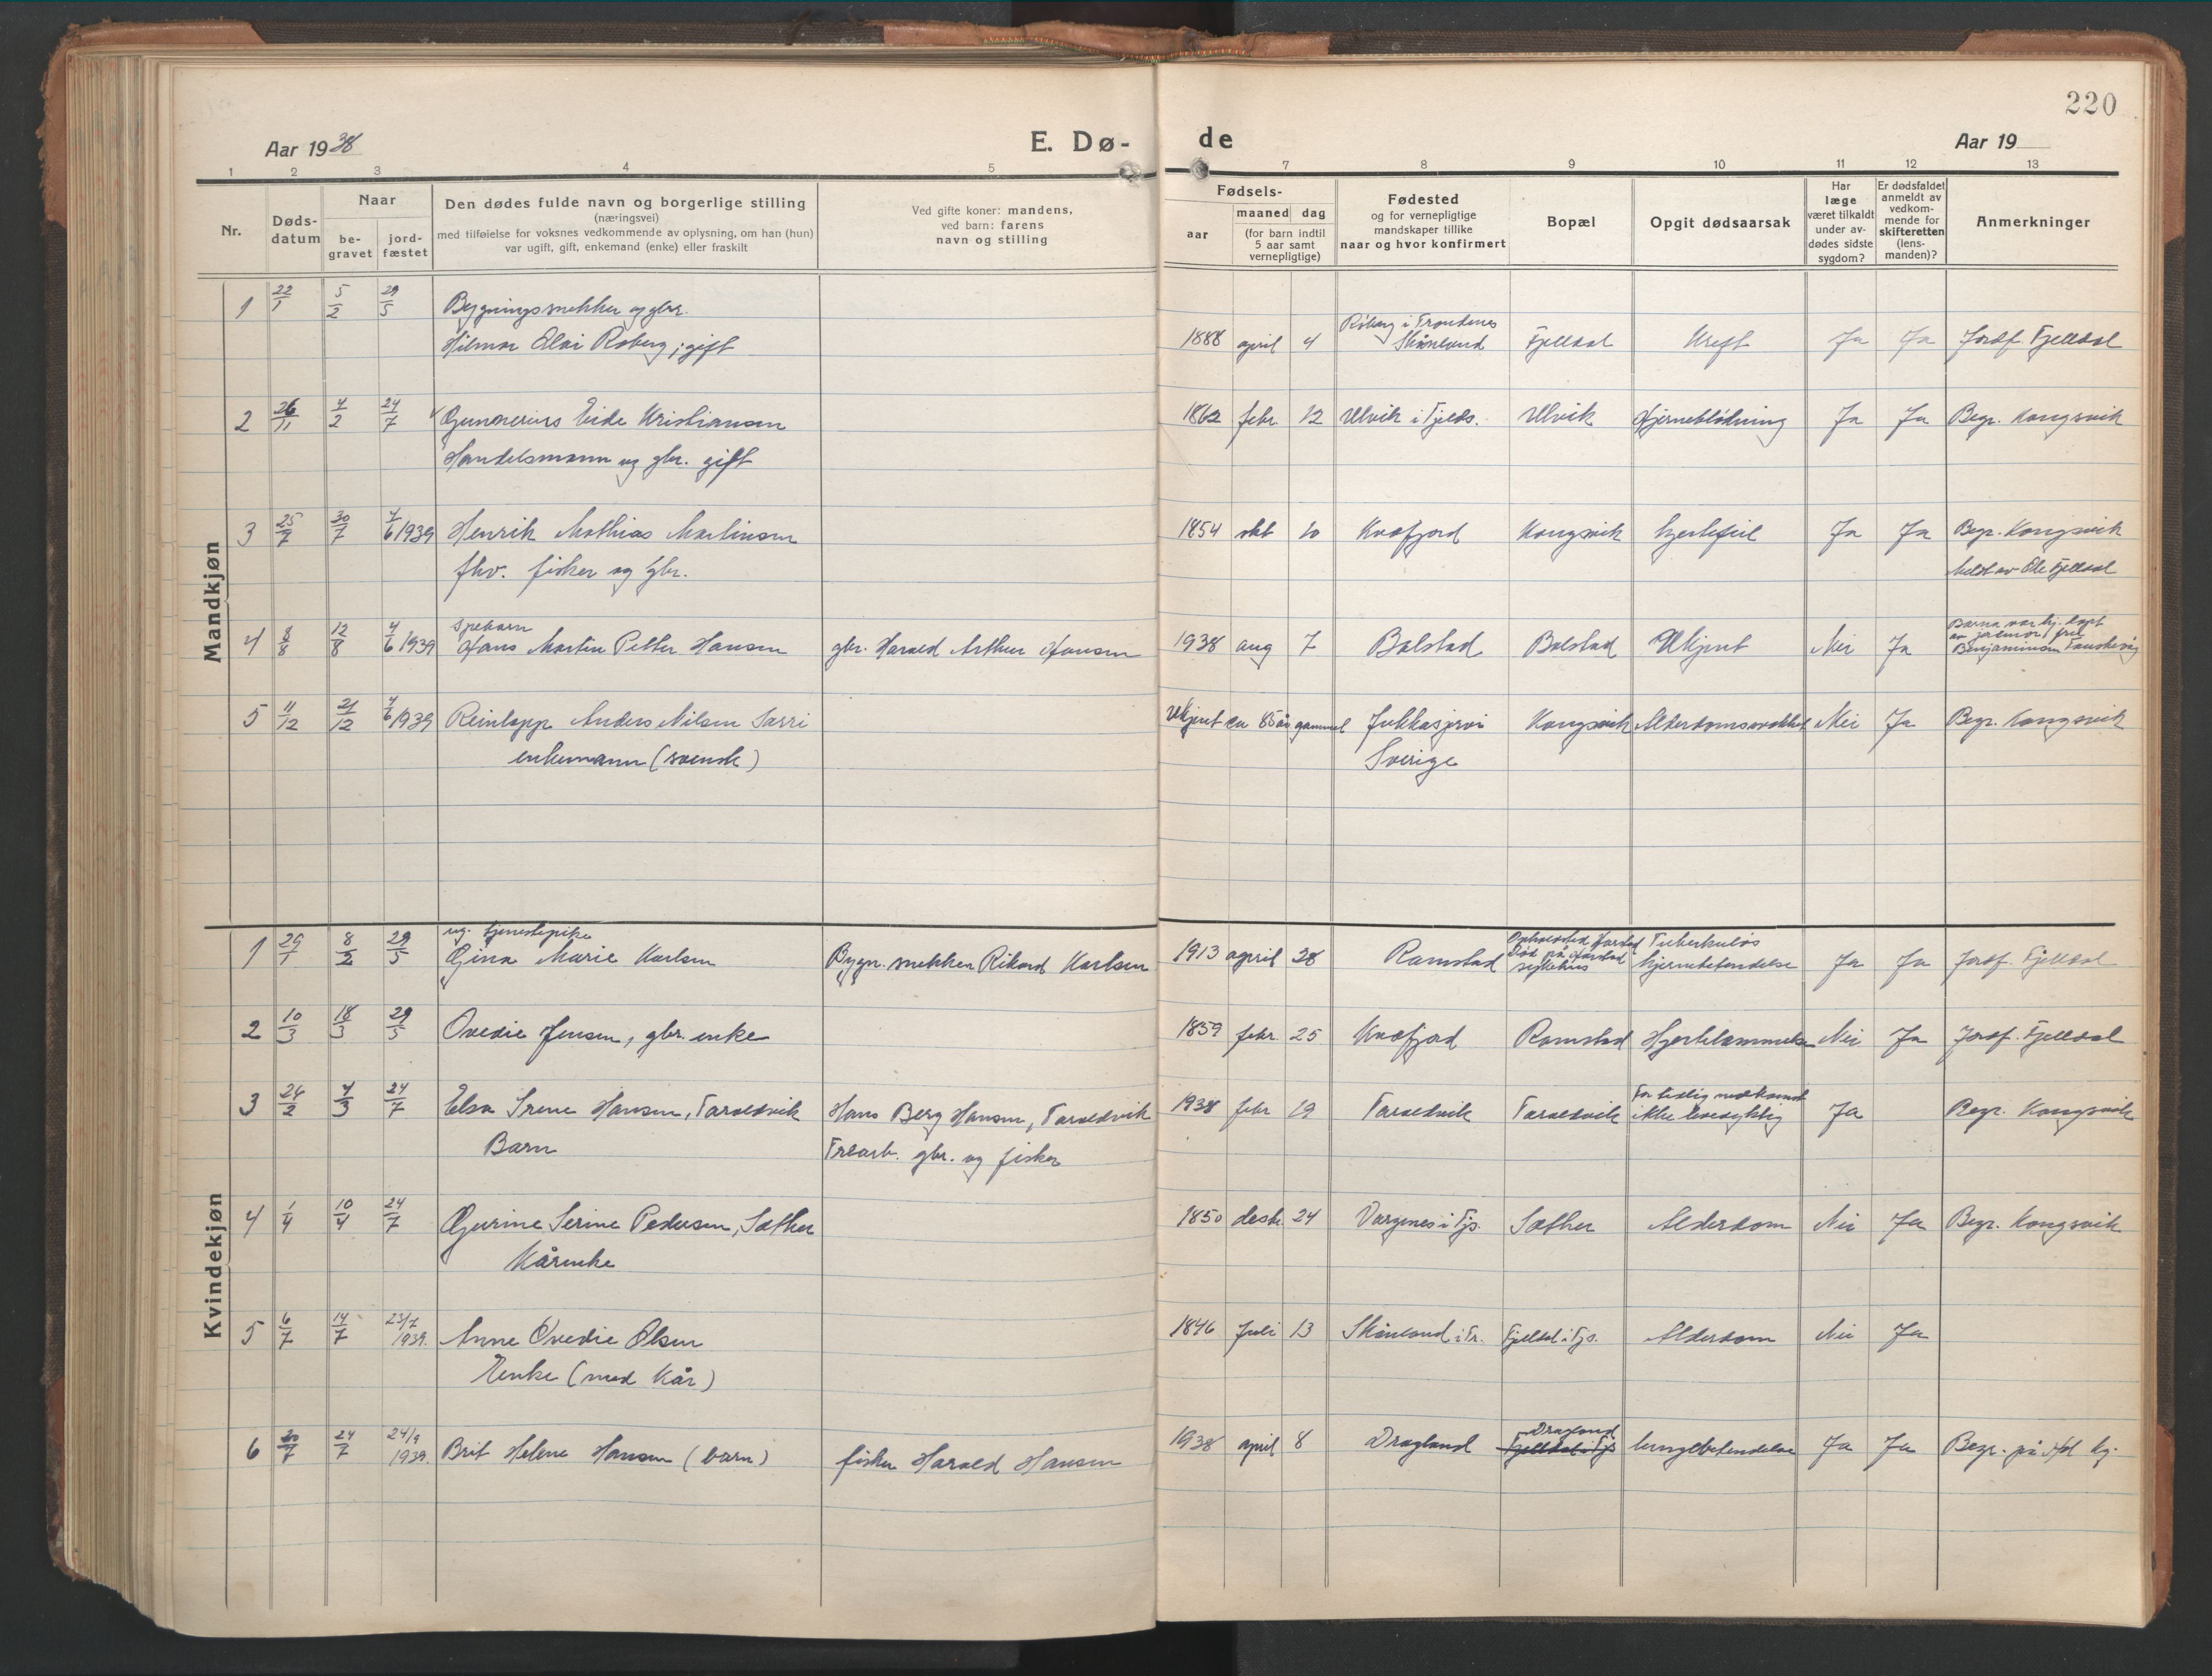 220
Aar 1938
E. Dø-
de
Aar 19
1 2 3 4 5 7 8 9 10 11 12 13
Nr.
Døds-
datum
Naar
be-
gravet
jord-
fæstet
Den dødes fulde navn og borgerlige stilling
(næringsvei)
med tilføielse for voksnes vedkommende av oplysning, om han (hun)
var ugift, gift, enkemand (enke) eller fraskilt
Ved gifte koner: mandens,
ved barn: farens
navn og stilling
Fødsels-
aar
maaned dag
(for barn indtil
5 aar samt
vernepligtige)
Fødested
og for vernepligtige
mandskaper tillike
naar og hvor konfirmert
Bopæl
Opgit dødsaarsak
Har
læge
været tilkaldt
under av-
dødes sidste
sygdom?
Er dødsfaldet
anmeldt av
vedkom-
mende for
skifteretten
(lens-
manden)?
Anmerkninger
Mandkjøn
1 22/1 5/2 29/5 Bygningssnekker og gbr.
Hilmar Elai Røberg; gift
1888 april 4 Røberg i Trondenes
Skånland Fjelldal Kreft Ja Ja Jordf. Fjelldal
2 26/11 4/2 24/7 Gunnerius Eide Kristiansen
Handelsmann og gbr. gift
1862 febr. 12 Ulvik i Tjelds. Ulvik Hjerneblødning Ja Ja Begr. Kongsvik
3 25/7 30/7 4/6 1939 Henrik Mathias Martinsen
fhv. fisker og gbr.
1854 okt 10 Kvæfjord Kongsvik hjertefeil Ja Ja Begr. Kongsvik
av Ole Fjelldal
4 8/8 12/8 4/6 1939 Spebarn
Hans Martin Petter Hansen gbr. Harald Arthur Hansen
1938 aug 7 Balstad Balstad Ukjent Nei Ja Barna var hj. døpt
av jordmor frk
Benjaminsen
5 11/12 21/12 4/6 1939 Reinlapp Anders Nilsen Sarri
enkemann (svensk)
Ukjent ca 85 år gammel Jukkasjervi
Sverige Kongsvik Alderdomssvakhet Nei Ja Begr. Kongsvik
Kvindekjøn
1 29/1 8/2 29/5 ug. tjenestepike
Gina Marie Karlsen Bygn. snekker Rikard Karlsen
1913 april 28 Ramstad Opholdssted Harstad
Død på Harstad
sykehus Tuberkuløs
hjernebetendelse Ja Ja Jordf. Fjelldal
2 10/3 18/3 29/5 Ovedie Jensen, gbr. enke
1859 febr. 25 Kvæfjord Ramstad Hjertelammelse Nei Ja Jordf. Fjelldal
3 24/2 4/3 24/7 Elsa Irene Hansen, Taraldsvik
Barn
Hans Berg Hansen, Taraldsvik
Trearb. gbr. og fisker
1938 febr 19 Taraldsvik Taraldsvik For tidlig nedkomst
ikke levedyktig Ja Begr. Kongsvik
4 1/4 10/4 24/7 Gjurine Serine Pedersen, Sæther
Kårenke
1850 desbr 24 Vargenes i Tjs. Sæther Alderdom Nei Ja Begr. Kongsvik
5 6/7 14/7 23/7 1939. Anne Ovedie Olsen
Enke (med kår)
1846 Juli 13 Skånland i Tr. Fjelldal i Tjs. Alderdom Nei Ja
6 20/7 24/7 24/9 1939. Brit Helene Hansen (barn) fisker Harald Hansen
1938 april 8 Dragland Dragland
Fjelldal i Tjs lungebetendelse Ja Ja Begr. på kg.